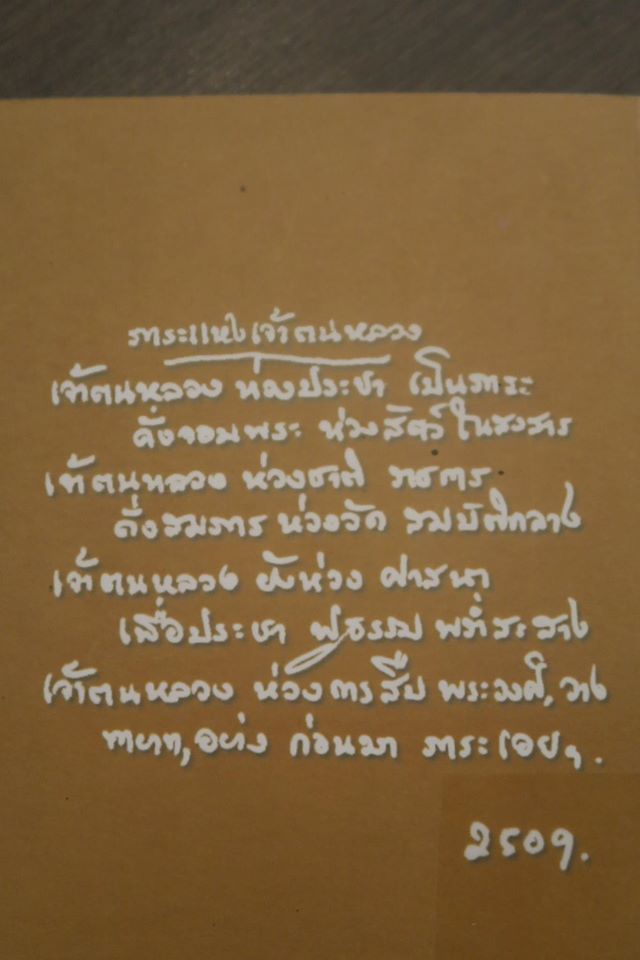 ภาระแห่งเจ้าตนหลวง
เจ้าตนหลวง ห่วงประชา เป็นภาระ
ดั่งจอมพระ ห่วงสัตว์ ในสงสาร
เจ้าตนหลวง ห่วงชาติ
ดั่งสมภาร ห่วงวัด สมบัติกลาง
เจ้าตนหลวง ยังห่วง ศาสนา
เพื่อประชา
เจ้าตนหลวง ห่วงการสืบ พระวงศ์, วาง
อย่าง ก่อนมา ภาระเอยฯ.